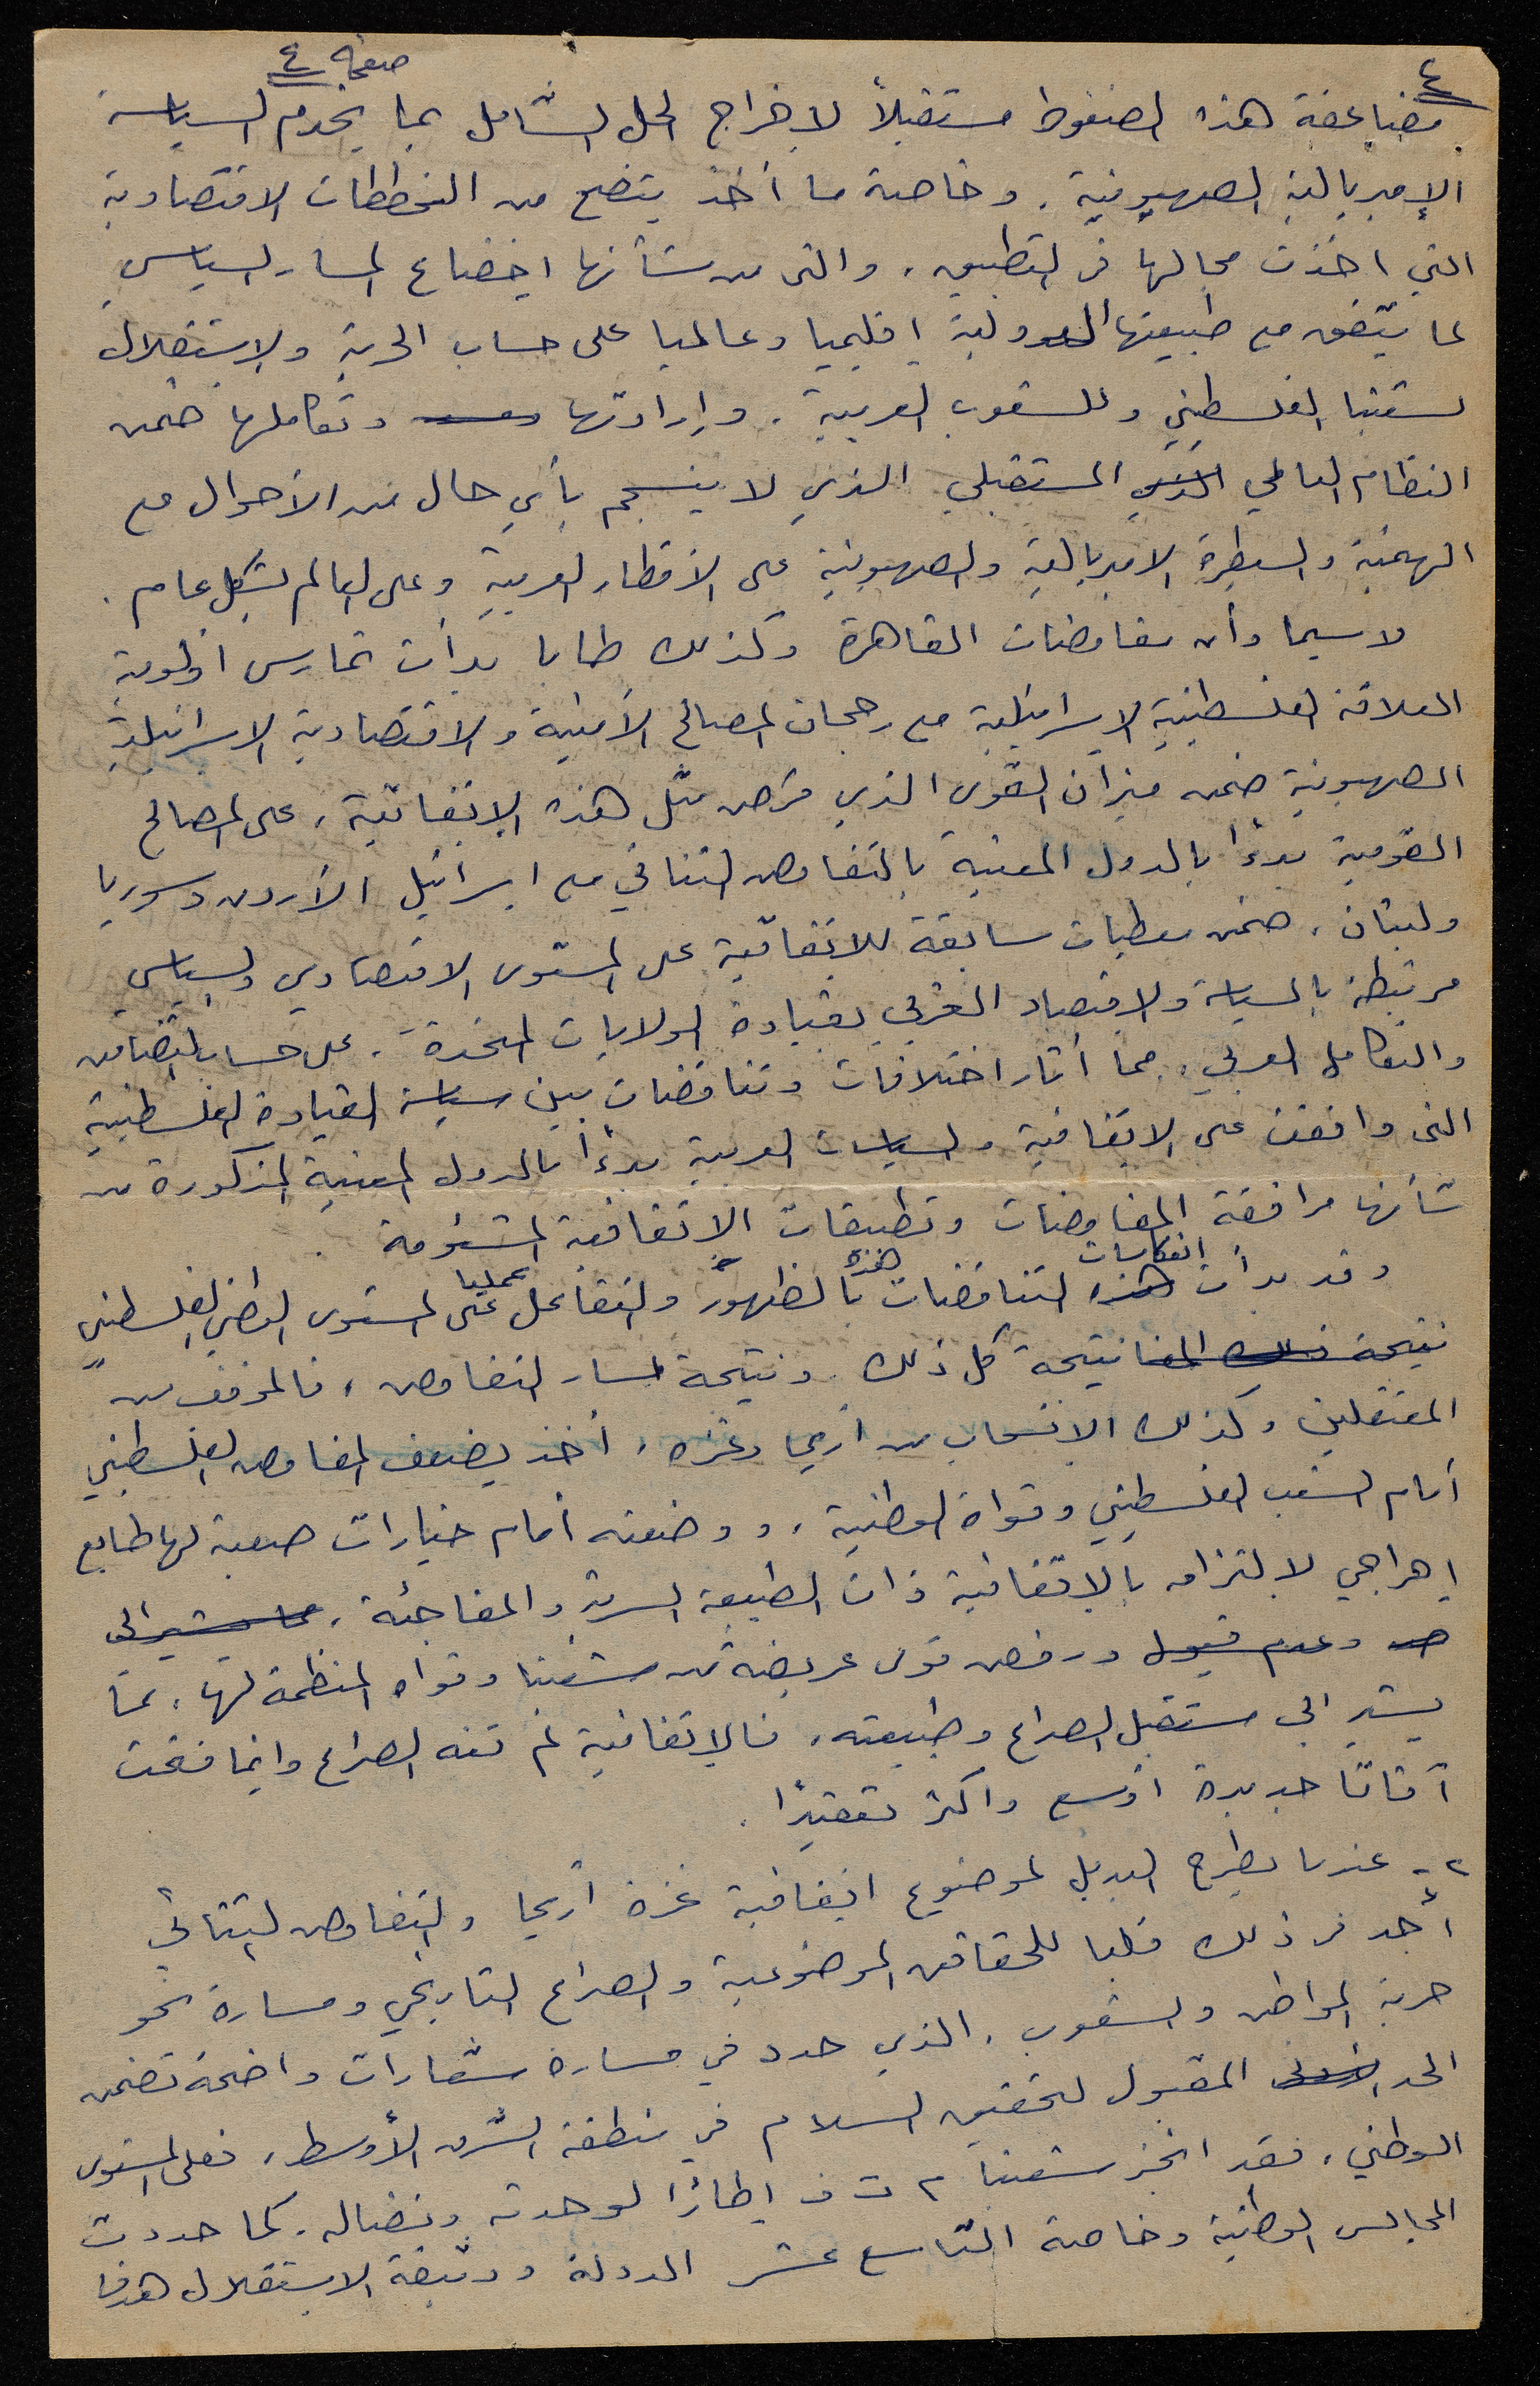 ٤ صفحة ٤
مضاعفة هذه الضغوط مستقبلاً لاخراج الحل الشامل بما يخدم السياسة
الإمبريالية الصهيونية. وخاصة ما أخذ يتضح من المخططات الاقتصادية
التي اخذت مجالها في التطبيق، والتي من شأنها اخضاع المسار السياسي
لما يتفق مع طبيعتها الدولية إقليميا وعالميا على حساب الحرية والاستقلال
لشعبنا الفلسطيني وللشعوب العربية. وإرادتها وتكاملها ضمن
النظام العالمي المستقبلي الذي لا ينسجم بأي حال من الأحوال مع
الهيمنة والسيطرة الامبريالية والصهيونية على الأقطار العربية وعلى العالم بشكل عام.
لاسيما وأن مفاوضات القاهرة وكذلك طابا بدأت تمارس اولوية
العلاقة الفلسطينية الإسرائيلية مع رجحان المصالح الأمنية والاقتصادية الاسرائيلية
الصهيونية ضمن ميزان القوى الذي فرض مثل هذه الاتفاقية، على المصالح
القومية بدءاً بالدول المعنية بالتفاوض الثنائي مع اسرائيل الأردن وسوريا
ولبنان، ضمن معطيات سابقة للاتفاقية على المستوى الاقتصادي والسياسي
مرتبطة بالسياسة والاقتصاد الغربي بقيادة الولايات المتحدة، على حساب التضامن
والتكامل العربي، مما أثار اختلافات وتناقضات بين سياسة القيادة الفلسطينية
التي وافقت على الاتفاقية والسياسات العربية بدءاً بالدول المعنية المذكورة من
شأنها مرافقة المفاوضات وتطبيقات الاتفاقية المشؤومة.
وقد بدأت انعكاسات هذه التناقضات بالظهور والتفاعل عمليا على المستوى الوطني الفلسطيني
نتيجة كل ذلك. ونتيجة لمسار التفاوض، فالموقف من
المعتقلين وكذلك الانسحاب من أريحا وغزة، أخذ يضعف المفاوض الفلسطيني
أمام الشعب الفلسطيني وقواه الوطنية، ووضعته أمام خيارات صعبة لها طابع
إحراجي لالتزامه بالاتفاقية ذات الطبيعة السرية والمفاجئة، مما يشير الى
وعدم قبول ورفض قوى عريضة من شعبنا وقواه المنظمة لها، مما
يشير الى مستقبل الصراع وطبيعته، فالاتفاقية لم تنه الصراع وإنما فتحت
آفاقا جديدة أوسع وأكثر تعقيدًا.
٢- عندما يطرح البديل لموضوع اتفاقية غزة أريحا والتفاوض الثنائي
أجد في ذلك قلبا للحقائق الموضوعية والصراع التاريخي ومساره نحو
حرية المواطن والشعوب، الذي حدد في مساره شعارات واضحة تضمن
الحد الادنى المقبول لتحقيق السلام في منطقة الشرق الأوسط، فعلى المستوى
الوطني، فقد انجز شعبنا م ت ف إطارًا لوحدته ونضاله. كما حددت
المجالس الوطنية وخاصة التاسع عشر الدولة ووثيقة الاستقلال هدفا